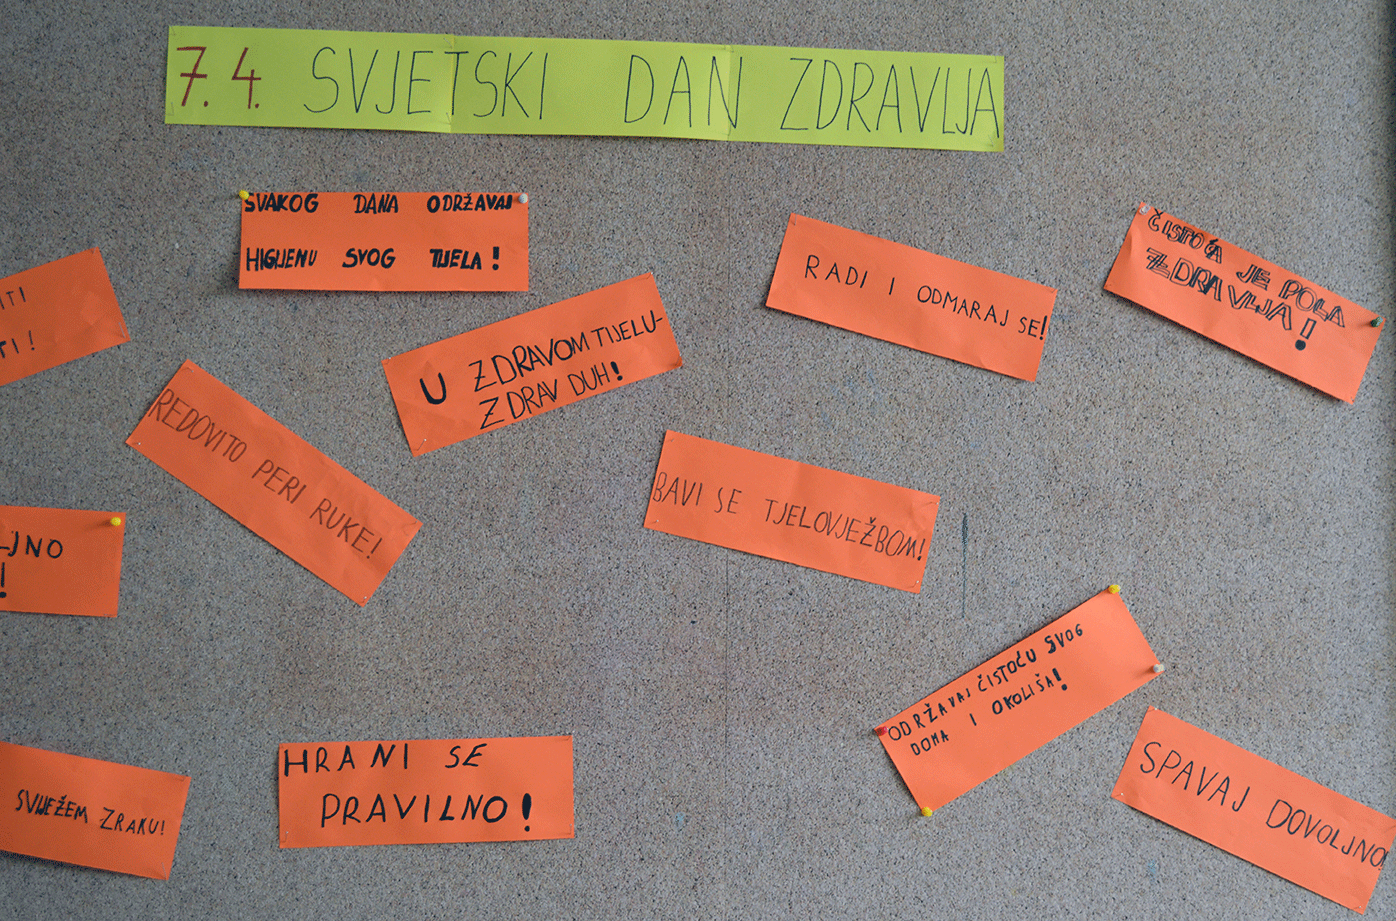 7.4. SVJETSKI DAN ZDRAVLJA
SVAKOG DANA ODRŽAVAJ
HIGIJENU SVOG TIJELA!
RADI I ODMARAJ SE!
ČISTOĆA JE POLA
ZDRAVLJA!
U ZDRAVOM TIJELU-
ZDRAV DUH!
REDOVITO PERI RUKE!
BAVI SE TJELOVJEŽBOM!
ODRŽAVAJ ČISTOĆU SVOG
DOMA I OKOLIŠA!
SVJEŽEM ZRAKU!
HRANI SE
PRAVILNO!
SPAVAJ DOVOLJNO